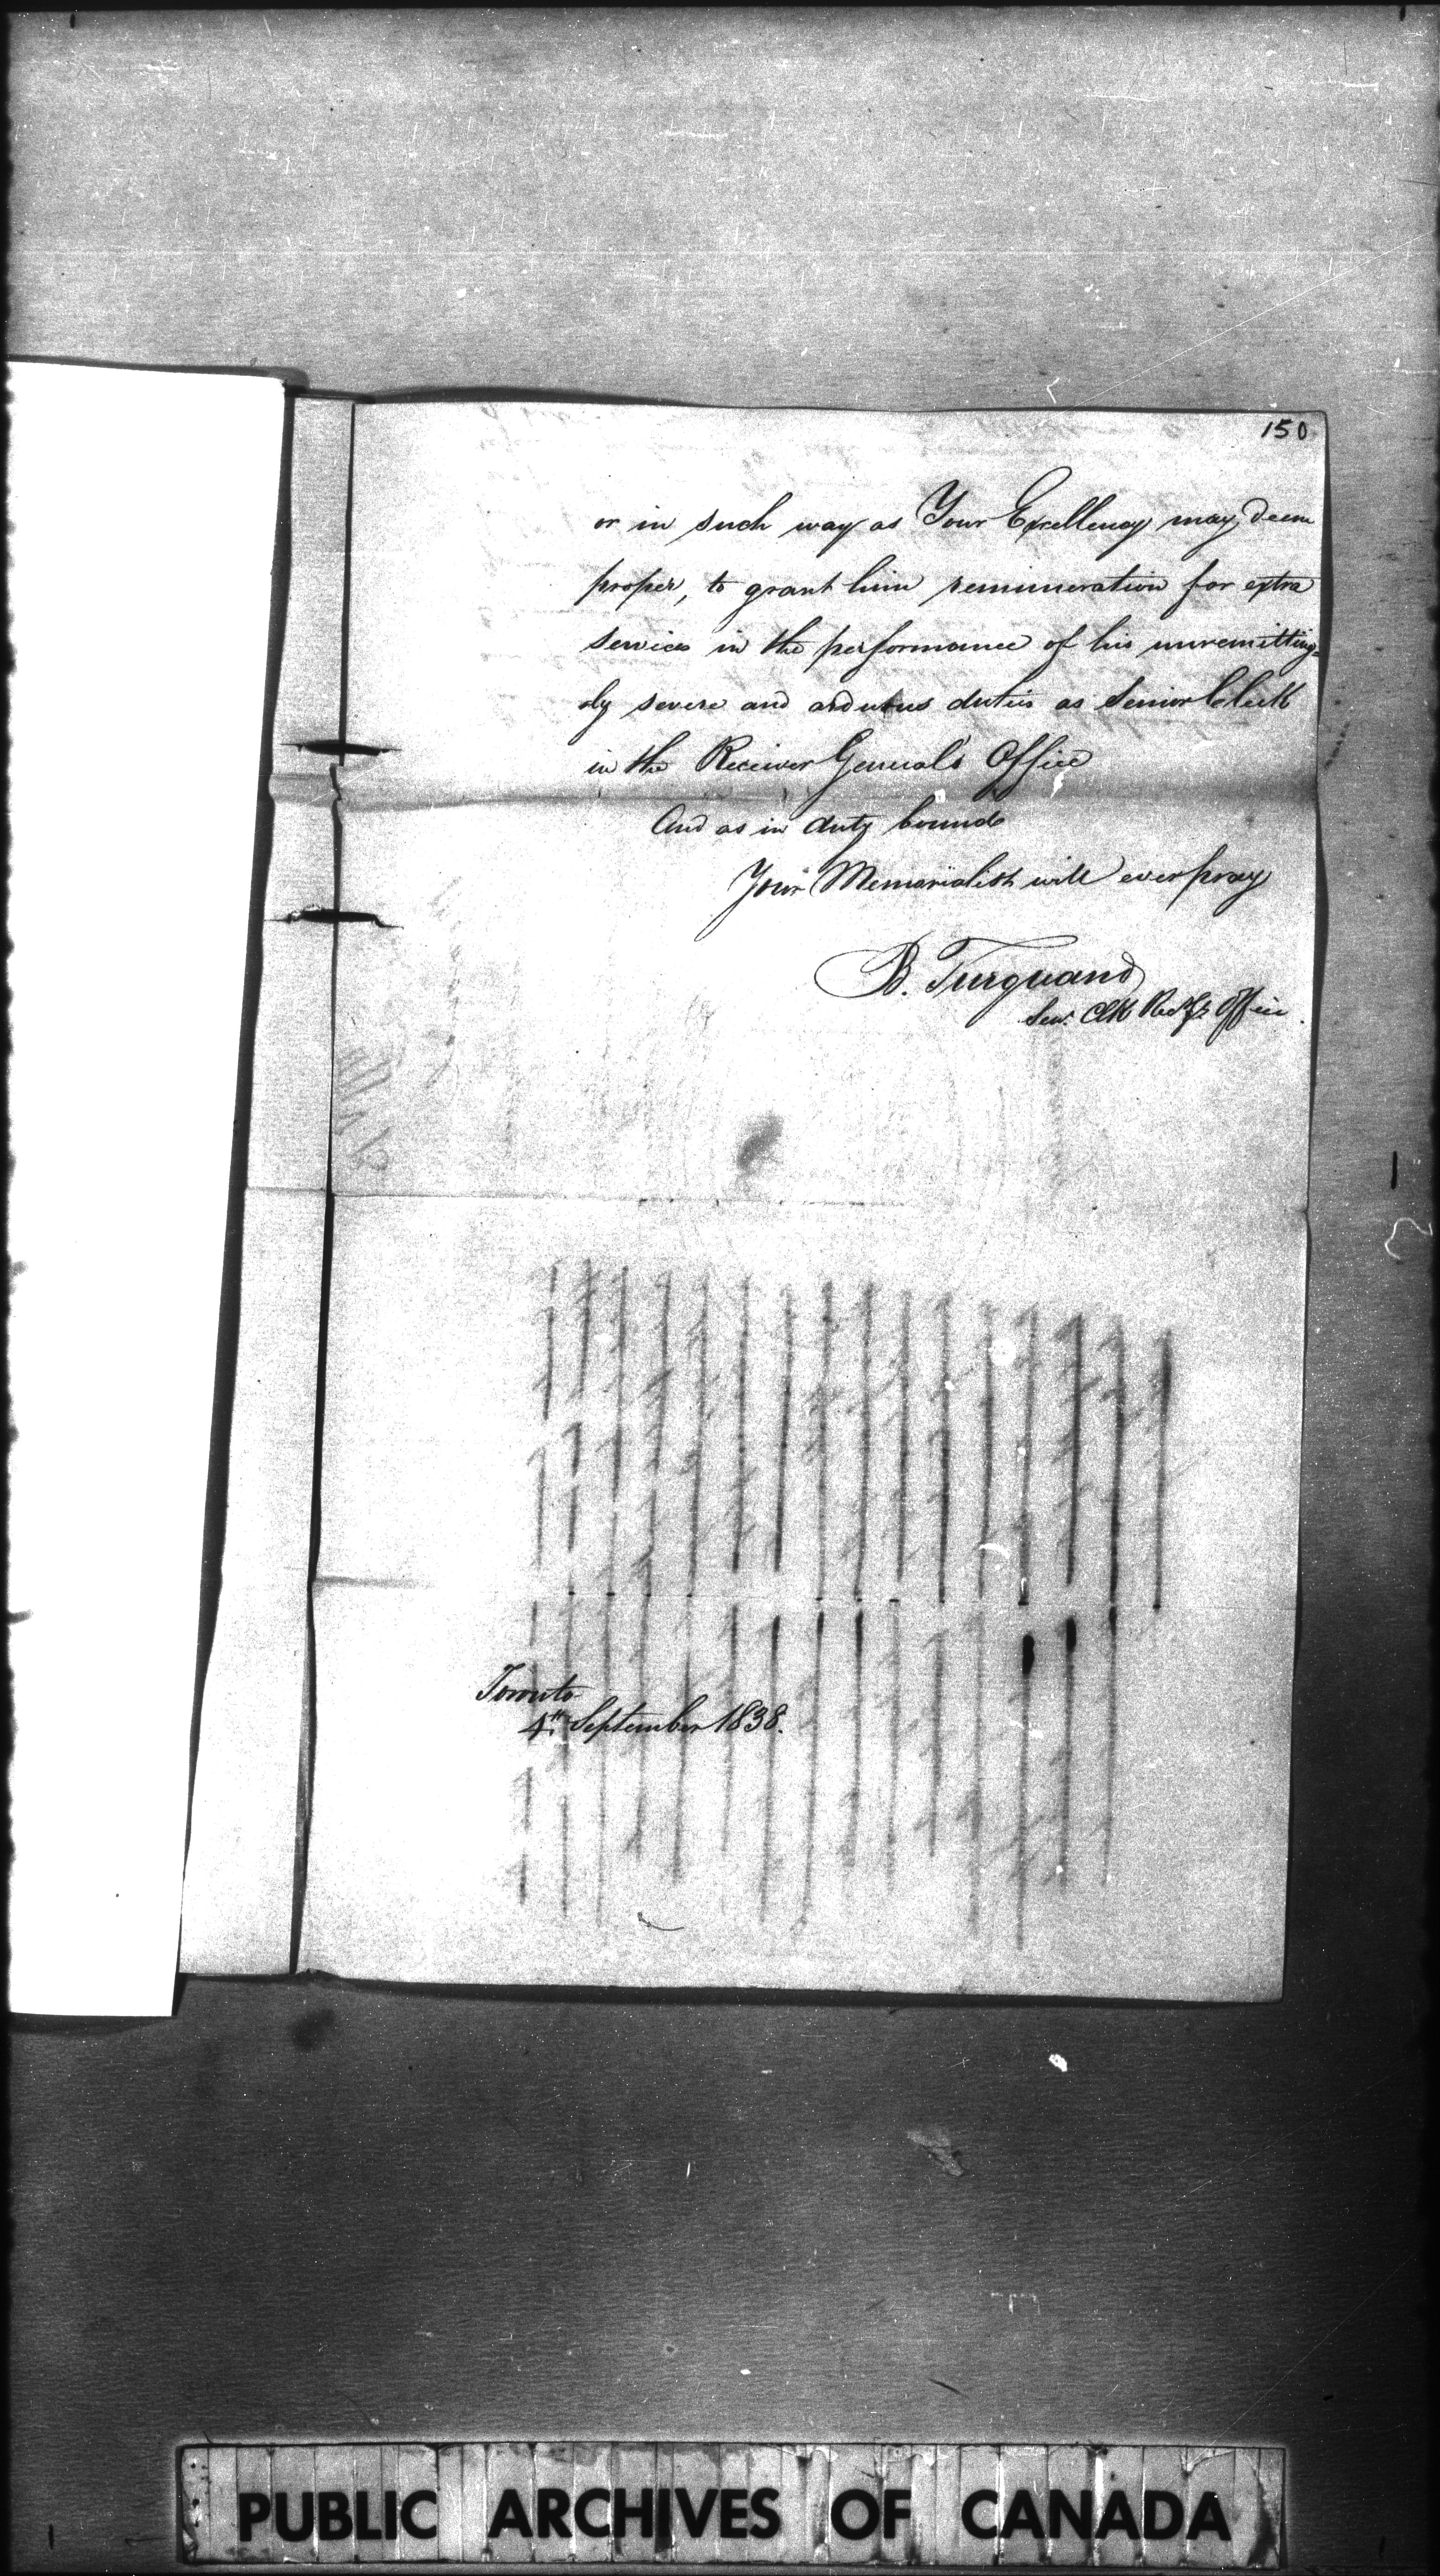 150
or in such way as Your Excellency may deem
proper, to grant him remuneration for extra
services in the performance of his unremitting=
ly severe and arduous duties as Senior Clerk
in the Receiver General's Office
And as in duty bound
Your Memorialist will ever pray
B. Turquand
Senr. Clk Rec. Gl's Office.
Toronto
4th September 1838.
PUBLIC ARCHIVES OF CANADA